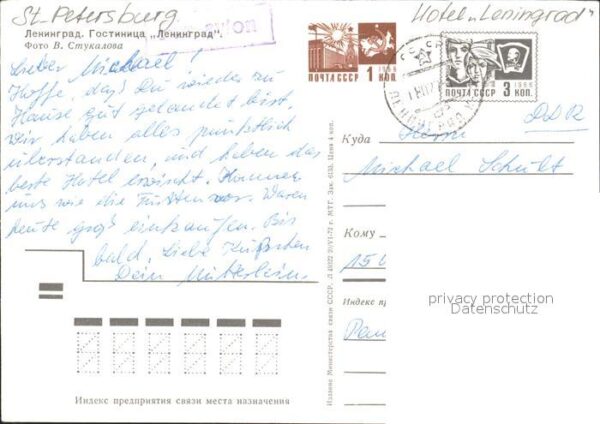 St. Petersburg
Hotel „Leningrad"
avion
Ленинград. Гостиница „Ленинград".
Фото В. Стукалова
ПОЧТА СССР 1 КОП.
1966
ПОЧТА СССР 3 КОП.
1966
Lieber Michael!
Hoffe, daß Du wieder zu
Hause gut gelandet bist,
Wir haben alles pünktlich
überstanden, und haben das
beste Hotel erwischt. Kommen
uns wie die Fürsten vor. Waren
heute groß einkaufen. Bis
bald. Liebe Küßchen
Dein Mütterlein
DDR
Куда Herrn
Michael Schult
Кому
150
Индекс п
privacy protection
Datenschutz
Издание Министерства связи СССР. 20/VI-72 г. МТГ. Зак. 6133. Цена 4 коп.
Индекс предприятия связи места назначения